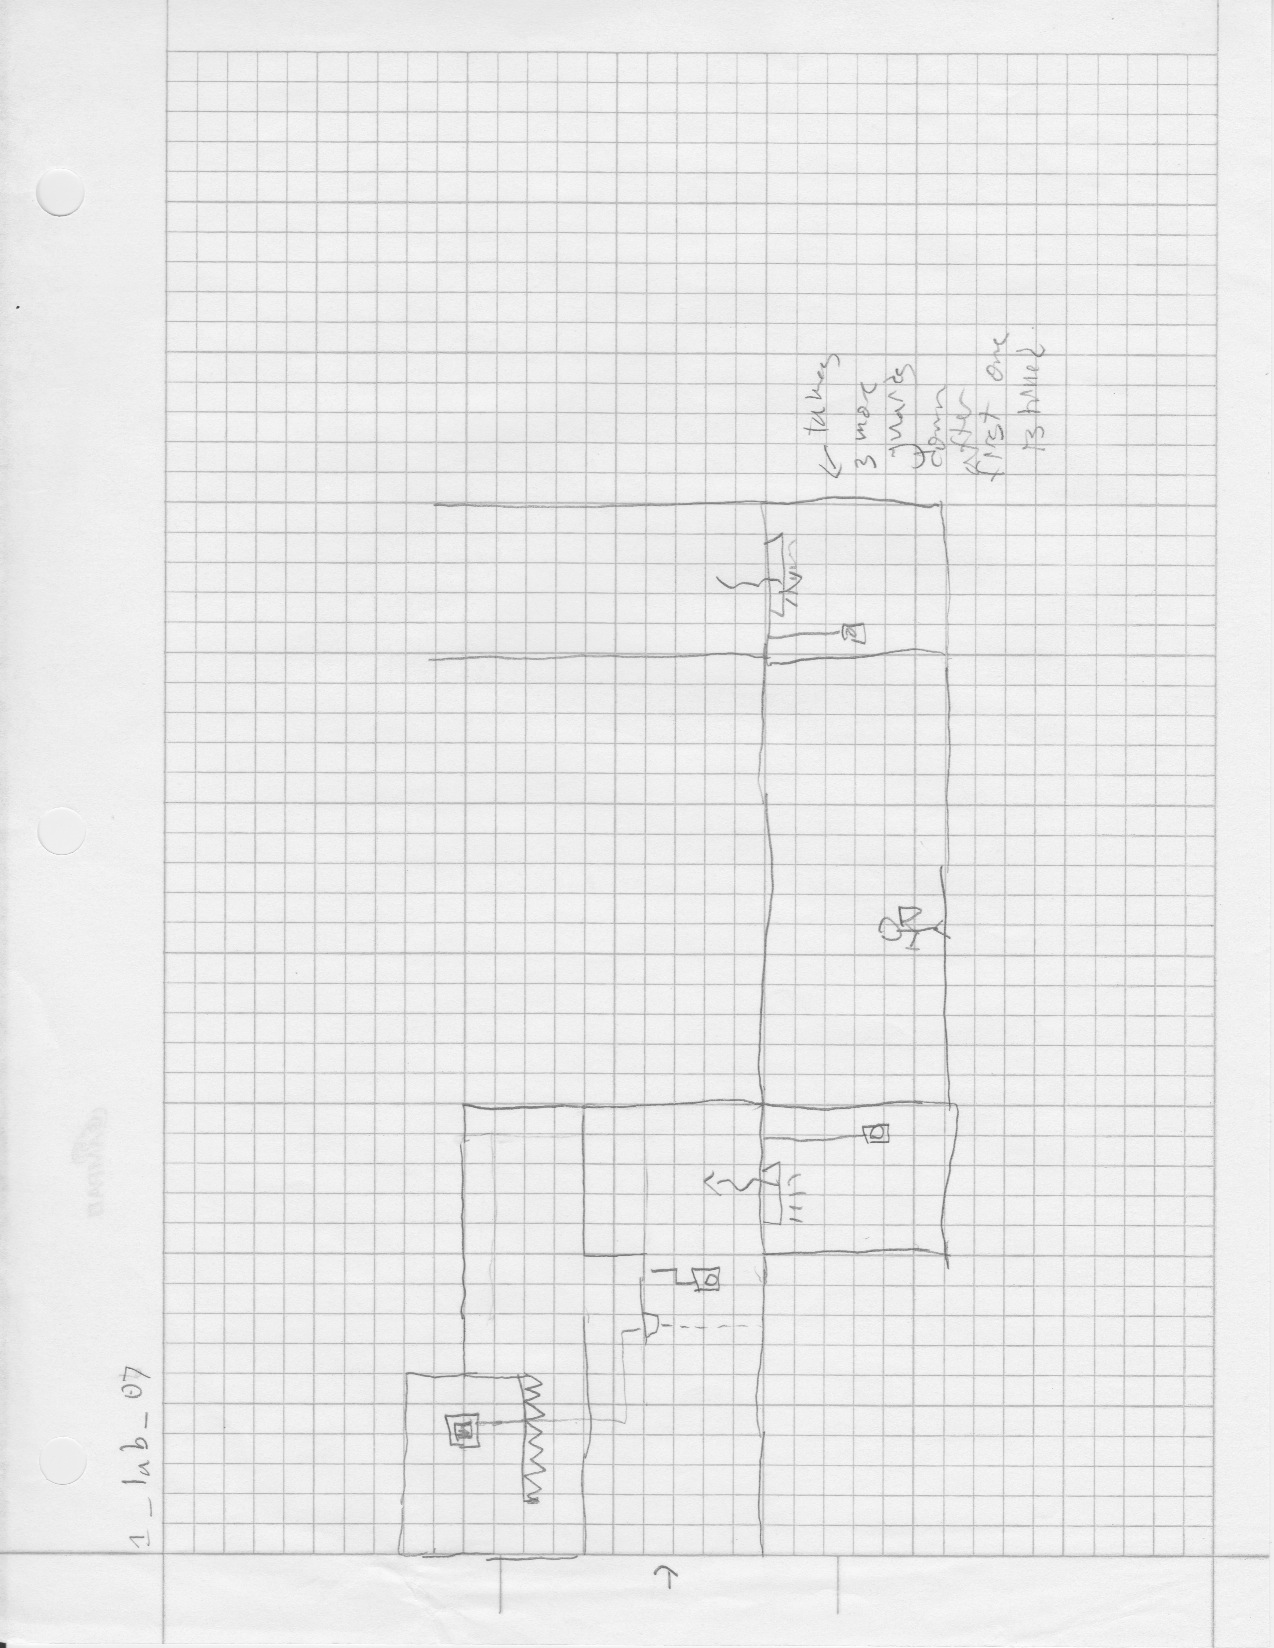 1_lab_07
← takes
3 more
guards
down
after
first one
is killed.